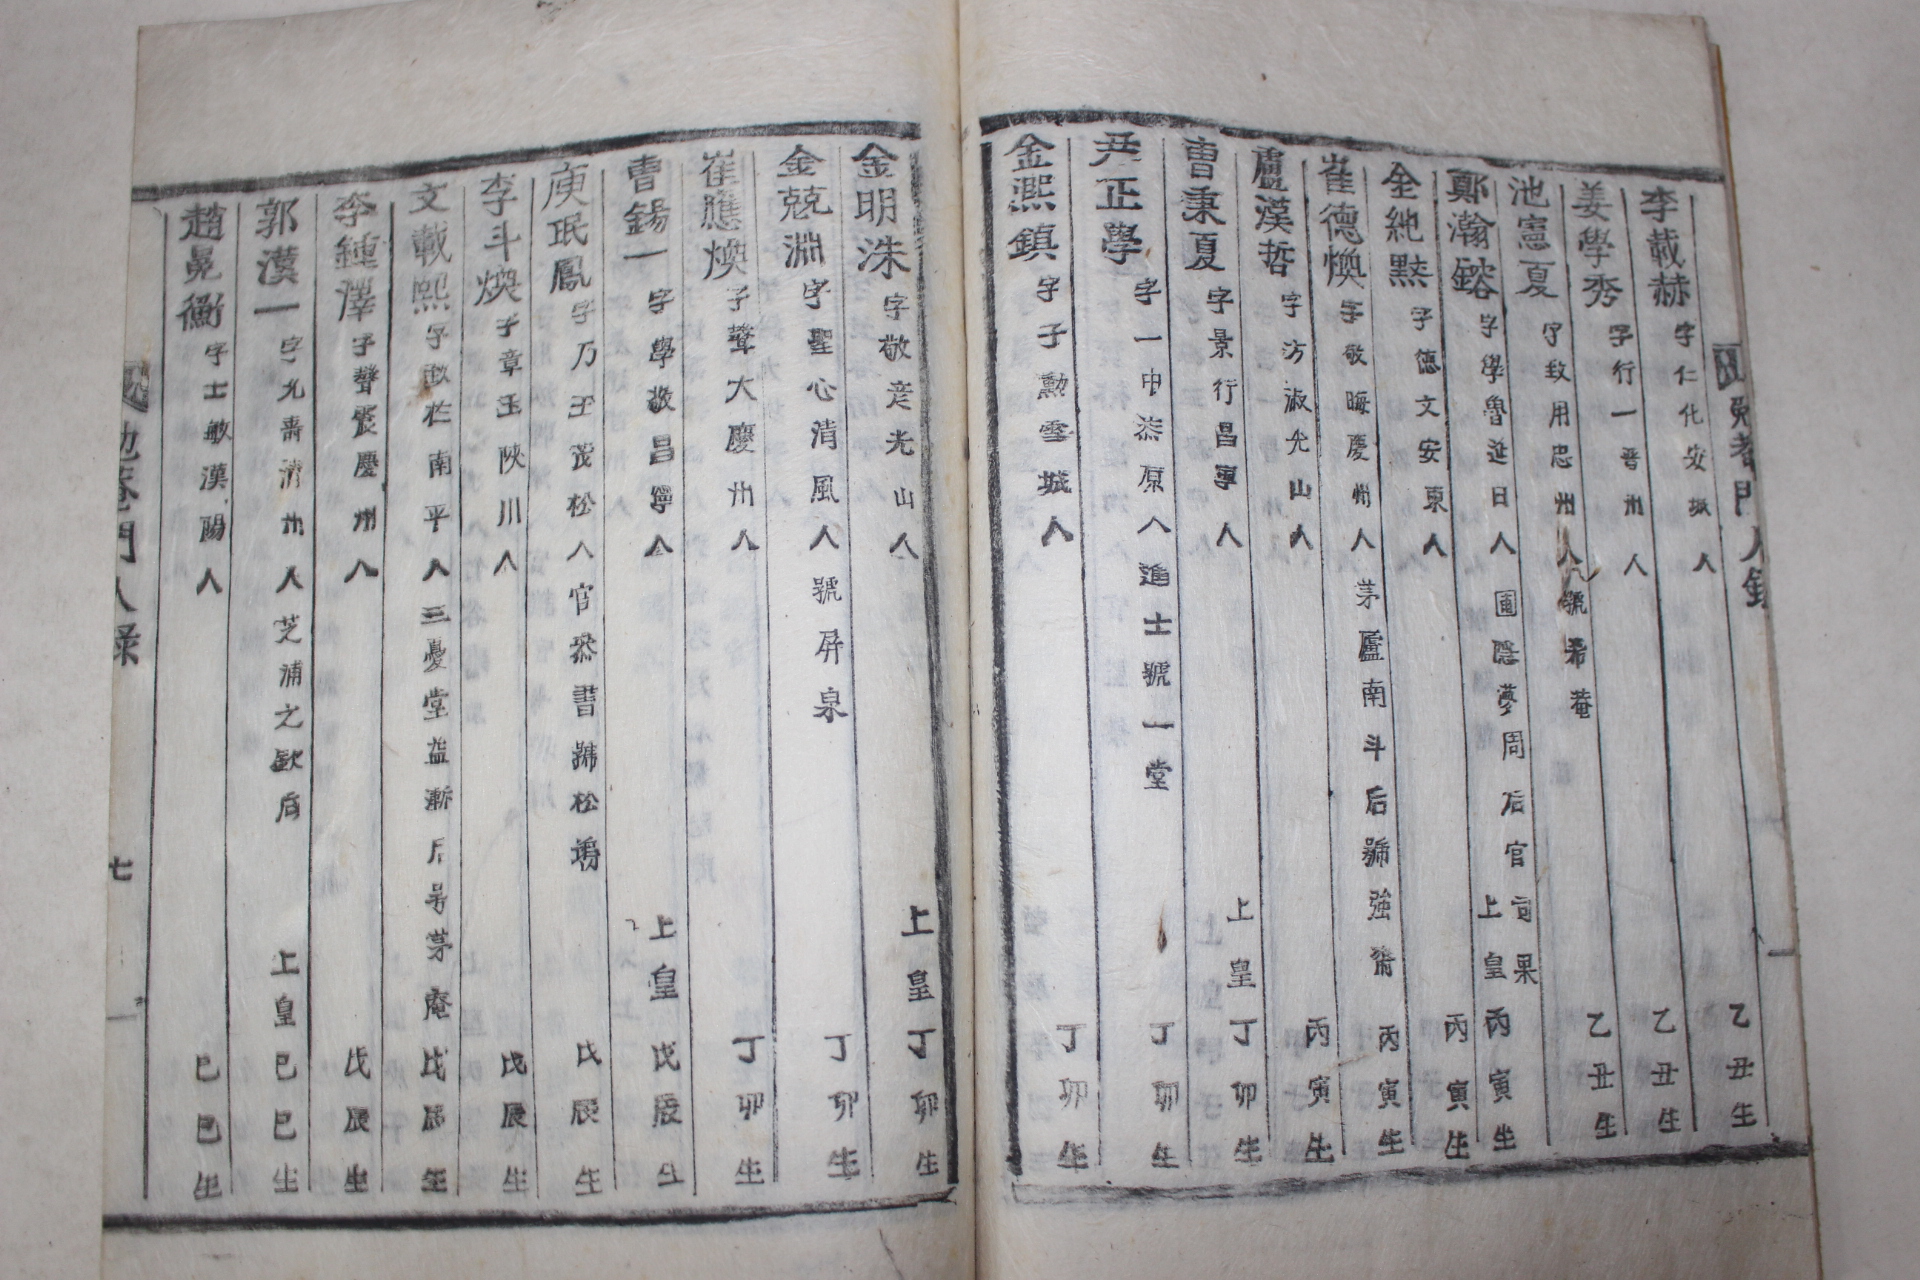 勉菴門人錄
李載赫 字仁化安城人 乙丑生
姜學秀 字行一晋州人 乙丑生
池憲夏 字致用忠州人號希菴 乙丑生
鄭瀚鎔 字學魯延日人圃隱夢周后官司果 上皇丙寅生
金純默 字德文安東人 丙寅生
崔德煥 字敬晦慶州人茅廬南斗后號強齋 丙寅生
盧漢哲 字淑光山人 丙寅生
曺秉夏 字景行昌寧人 上皇丁卯生
尹正學 字一中漆原人進士號一堂 丁卯生
金熙鎮 字子勳雪城人 丁卯生
金明洙 字敬彦光山人 上皇丁卯生
金兢淵 字聖心清風人號屏泉 丁卯生
崔應煥 子聲大慶州人 丁卯生
曺錫一 字學敬昌寧人 上皇戊辰生
庾珉鳳 字乃玉茂松人官叅書號松塢 戊辰生
李斗煥 子章玉陜川人 戊辰生
文載熙 字南平人三憂堂益漸后号茅庵 戊辰生
李鍾澤 子聲震慶州人 戊辰生
郭漢一 字允清州人芝浦之欽后 上皇巳巳生
趙晃衡 字士敏漢陽人 巳巳生
勉菴門人錄 七